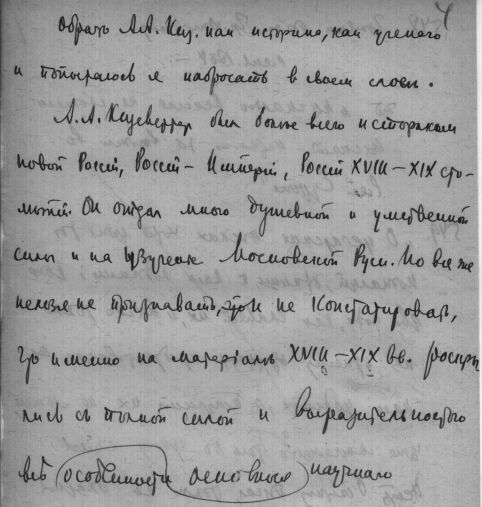 4
Образъ А.А. Киз. как историка, как ученаго
и попытаюсь я набросать в своем слове.
А.А. Кизеветтер был больше всего историком
новой Россіи, Россіи – Имперіи, Россіи XVIII–XIX сто-
летій. Он отдал много душевной и умственной
силы и на изученіе Московской Руси. Но все же
нельзя не признавать, и не констатировать,
что именно на матеріалѣ XVIII–XIX вв.
лись съ полной силой и выразительностью
всѣ особенности основныя научнаго